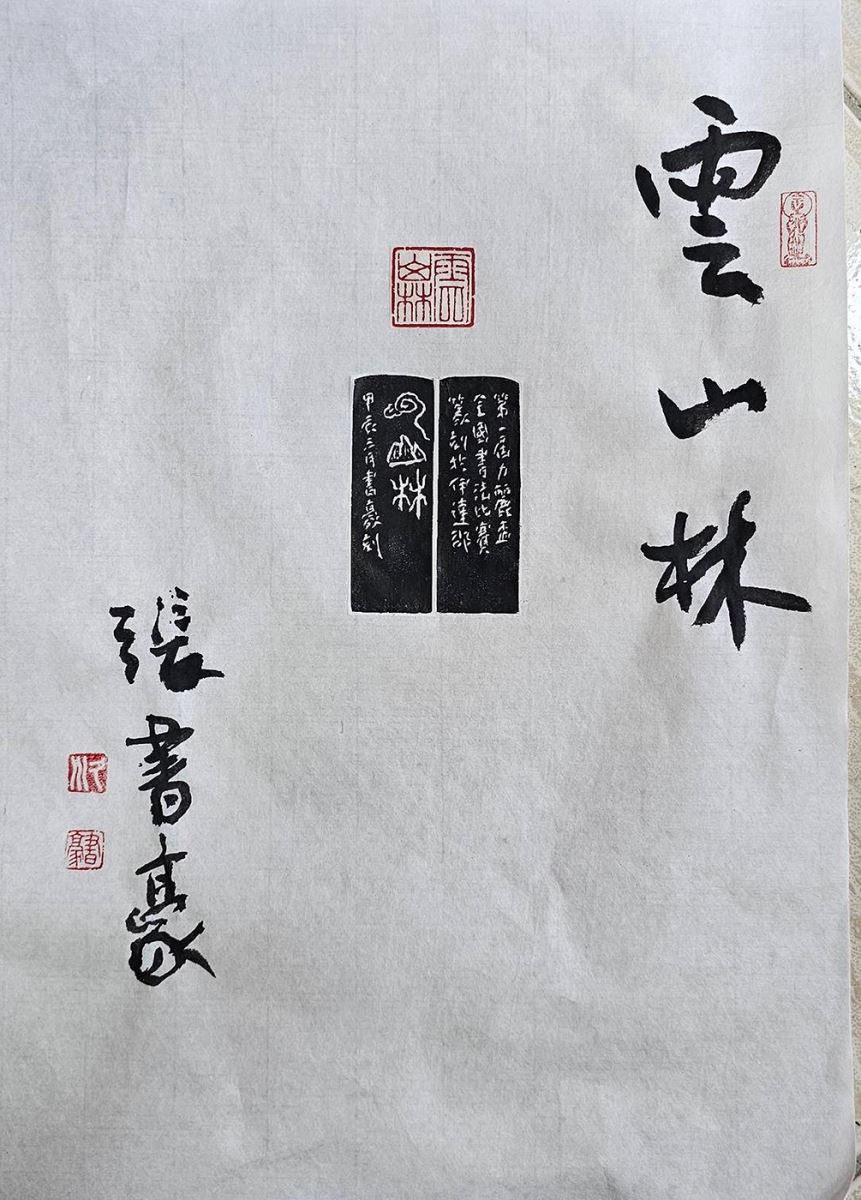 雲山林
雲山林
第一屆力麗盃
全國書法比賽
篆刻於伊達邵
云山林
甲辰三月書豪刻
張書豪
書豪